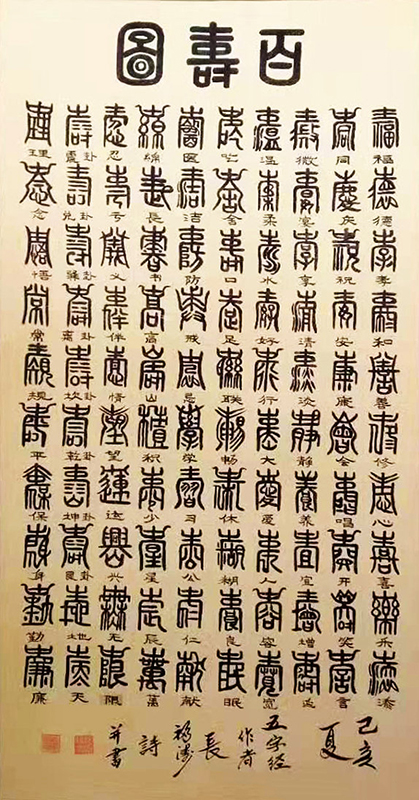 百壽圖
福德孝和善修心喜乐
同庆祝安康会唱开笑言
微宴享清淡静养宜增益
温柔水好行大爱人容宽
吃舍口足联畅休糊良眠
医洁防戒忌学习公仁献
绵長书高山积少星辰萬
忍亏义伴情望运兴无限
震卦兑卦巽卦离卦坎卦乾卦坤卦艮卦地天
理念悟常规平保身勤廉
己亥
夏
五字經
作者
長
詩
并書